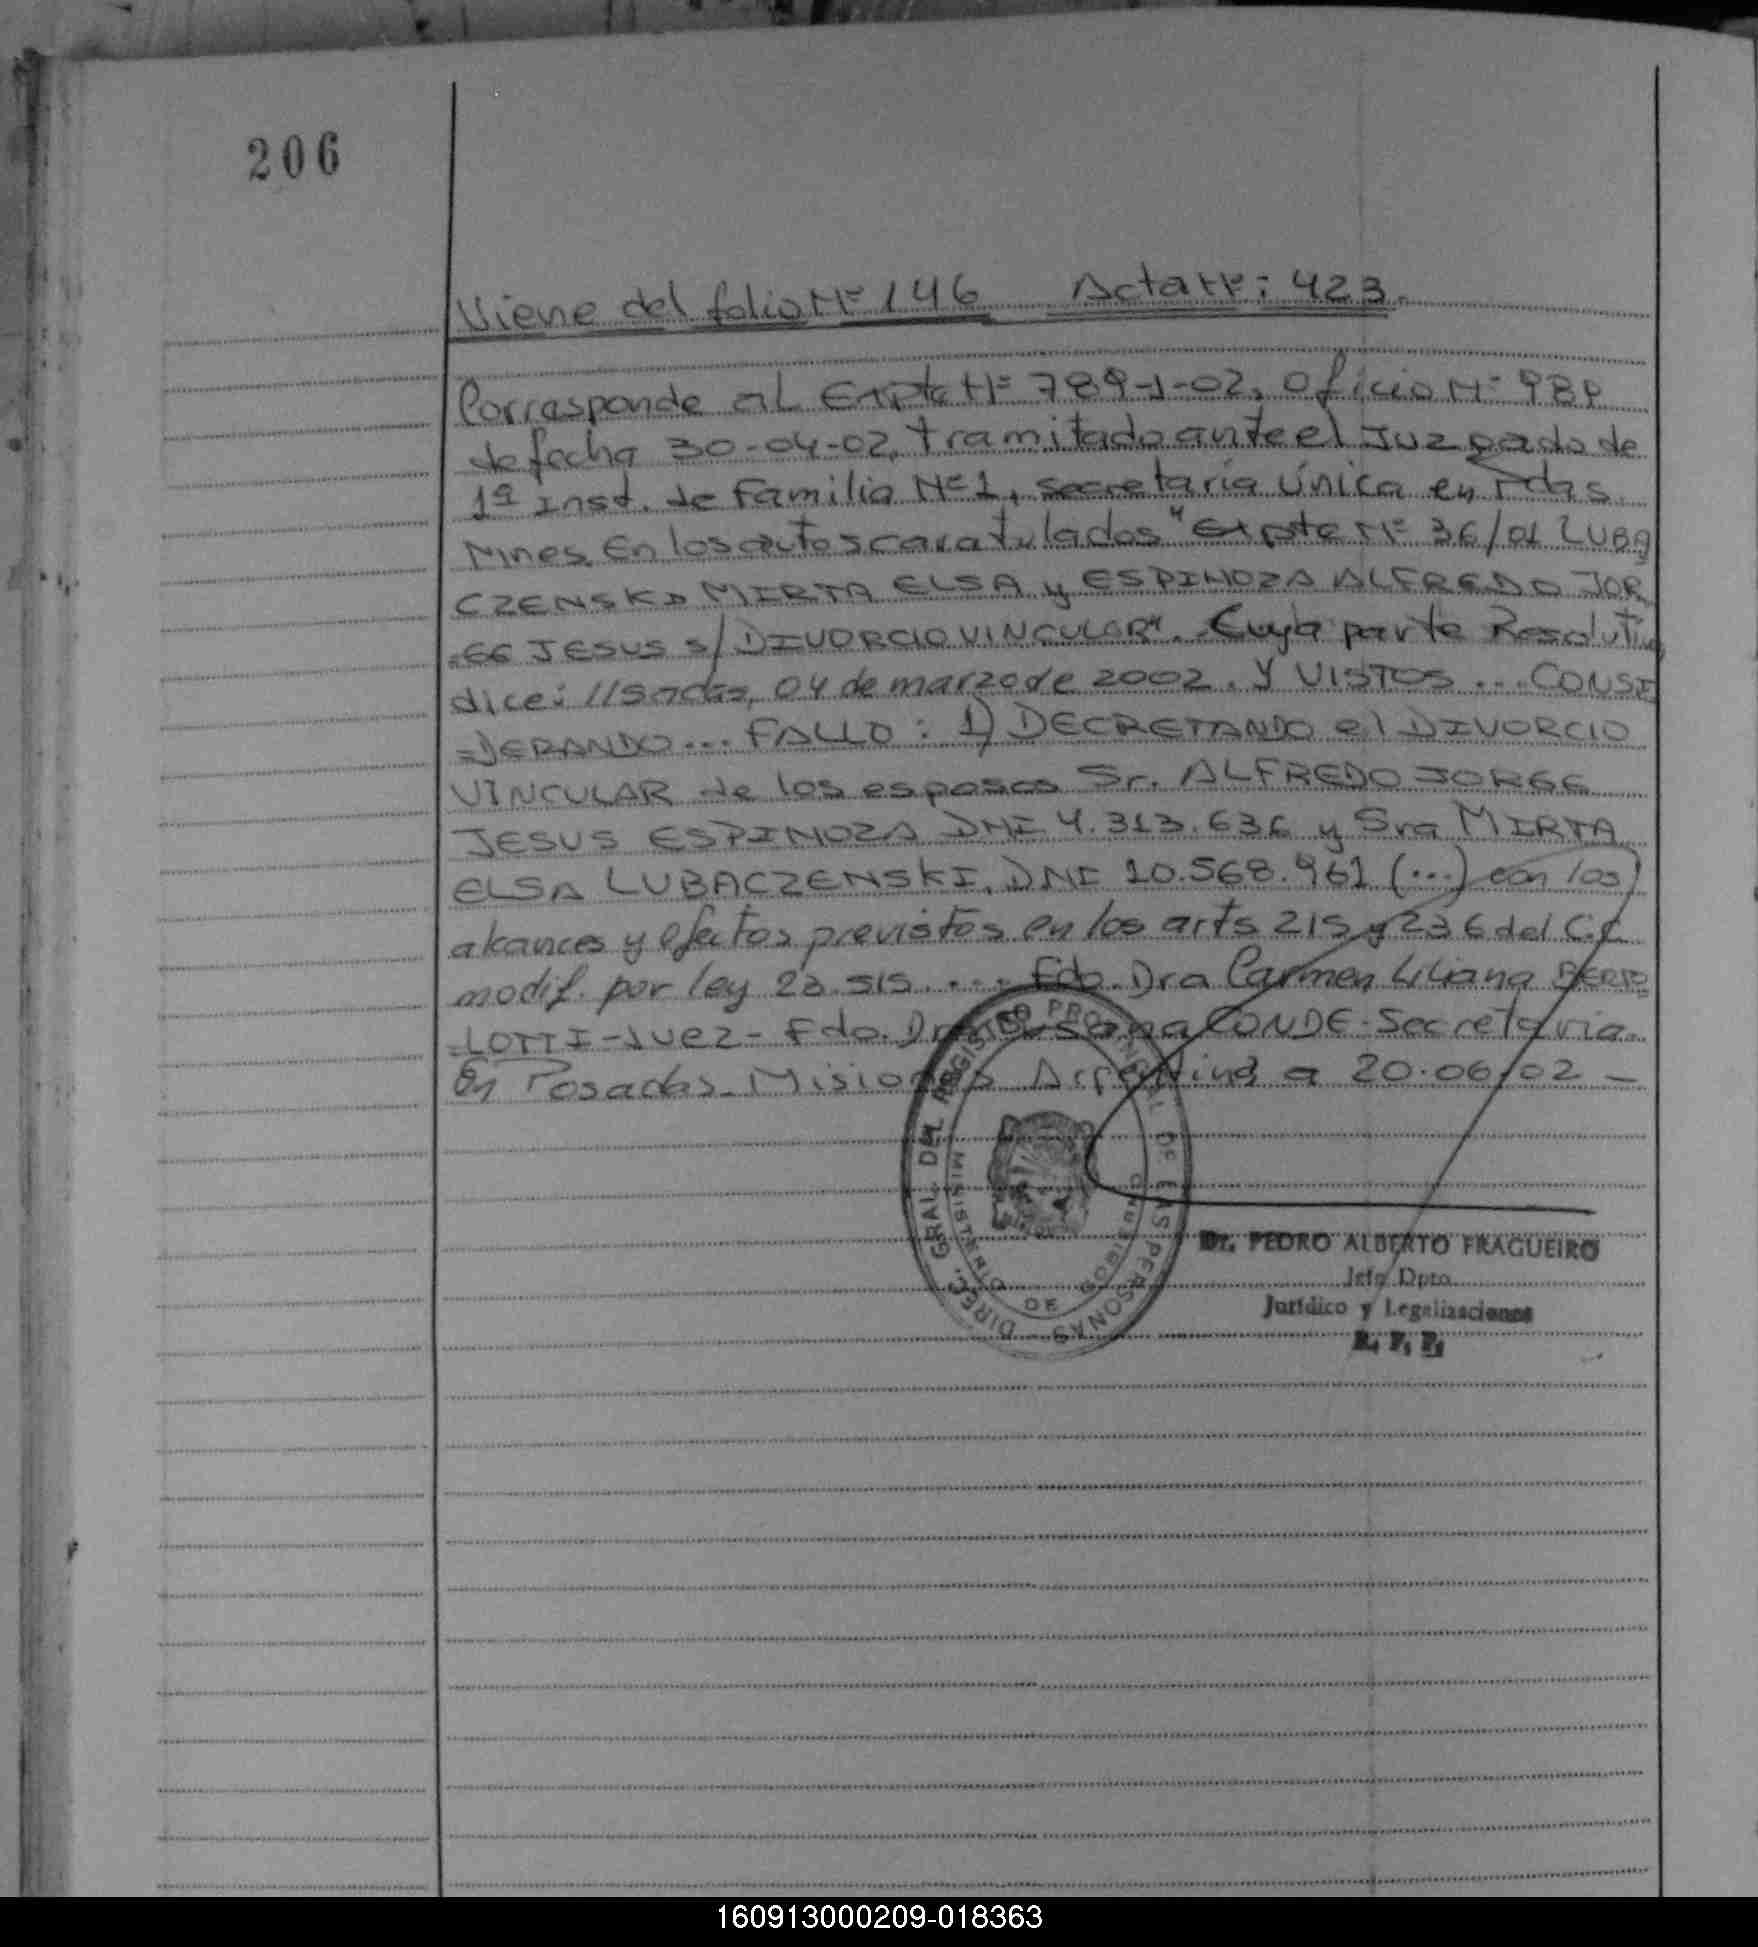 206
Viene del folio Nº 146 Acta Nº: 423.
Corresponde al Expte Nº 789-J-02, Oficio Nº 989
de fecha 30-04-02, tramitado ante el Juzgado de
1ª Inst. de Familia Nº 1, secretaría Única en Pdas
Mnes. En los autos caratulados "Expte Nº 36/01 LUBA
CZENSKI MIRTA ELSA y ESPINOZA ALFREDO JOR
-GE JESUS s/ DIVORCIO VINCULAR". Cuya parte Resolutiva
dice: //sadas, 04 de marzo de 2002. Y VISTOS ... CONSI
=DERANDO ... FALLO: 1) DECRETANDO el DIVORCIO
VINCULAR de los esposos Sr. ALFREDO JORGE
JESUS ESPINOZA DNI 4.313.636 y Sra MIRTA
ELSA LUBACZENSKI, DNI 10.568.961 (...) con los
alcances y efectos previstos en los arts 215 y 236 del C.C.
modif. por ley 23.515 .... Fdo. Dra Carmen Liliana BERTO
=LOTTI - Juez - Fdo. Dra Susana CONDE - Secretaria.
En Posadas - Misiones Argentina a 20.06.02 -
DIREC. GRAL. DEL REGISTRO PROVINCIAL DE LAS PERSONAS
MINISTERIO DE GOBIERNO
Dr. PEDRO ALBERTO FRAGUEIRO
Jefe Dpto.
Jurídico y Legalizaciones
R. P. P.
160913000209-018363